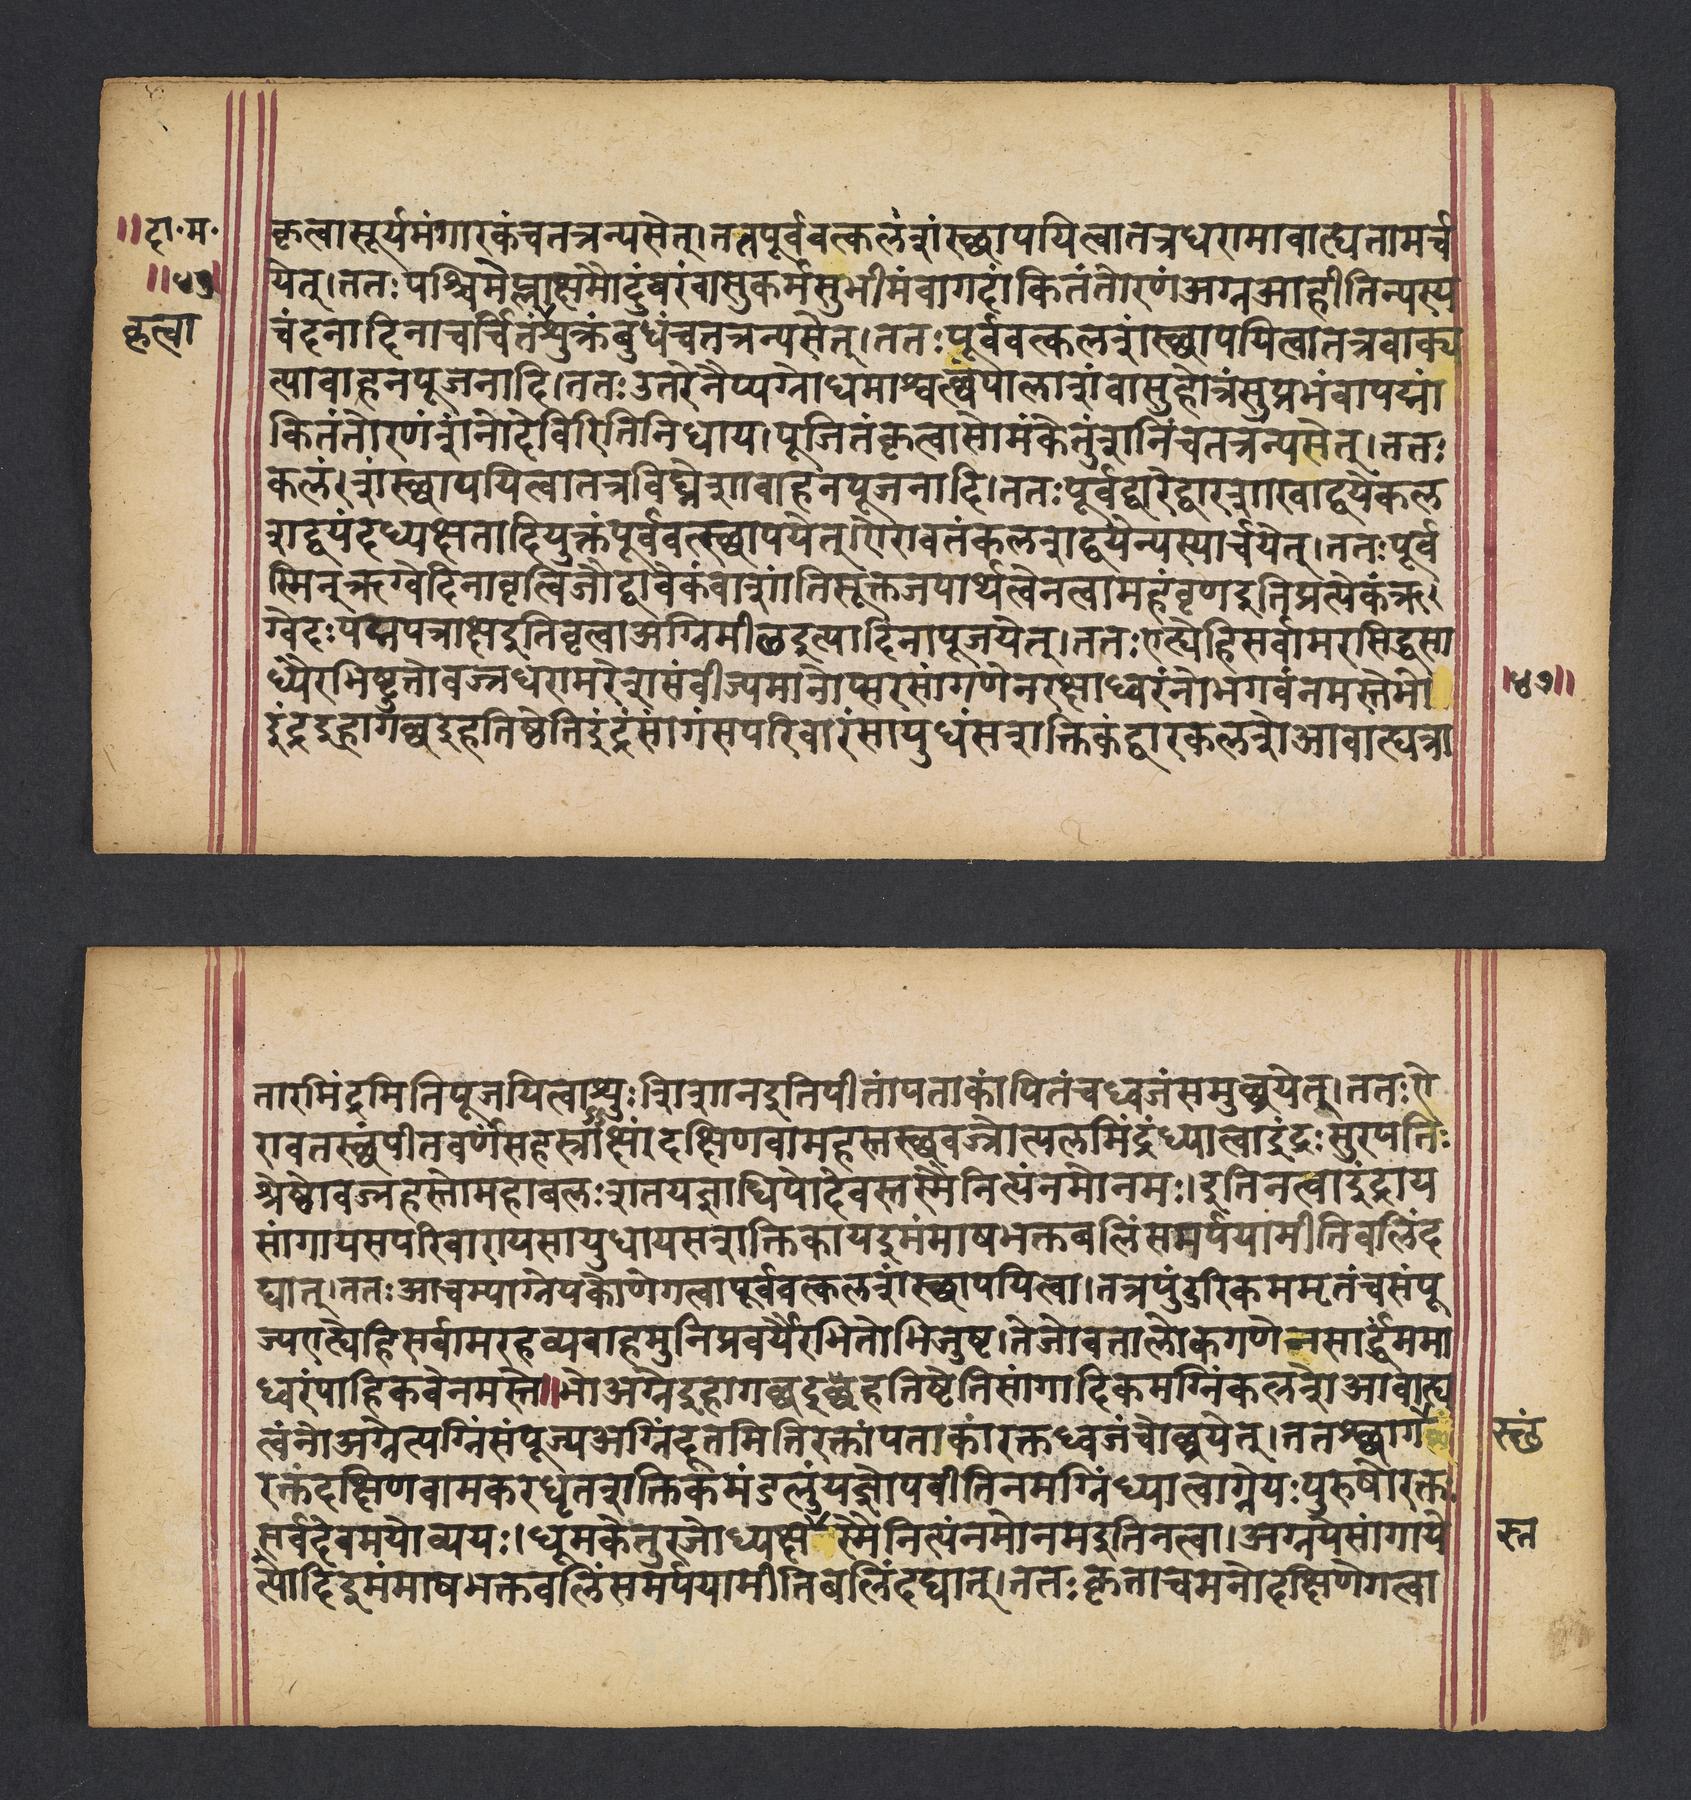 ॥दा॰म॰
॥४७
कृत्वा
कृत्वासूर्यमंगारकंचतत्रन्यसेत्।ततपूर्ववत्कलंशंस्छापयित्वातत्रधरामावाह्येतामर्च
येत्।ततःपश्चिमेप्लाक्षमौदुंबरंवासुकर्मसुभीमंवागदांकितंतोरणंअग्नआहीतिन्यस्य
चंदनादिनाचर्चितंश्युक्तंबुधंचतत्रन्यसेत्।ततःपूर्ववत्कलशंस्छापयित्वातत्रवाक्य
त्यावाहनपूजनादि।ततःउतरेनैप्यग्नोधमाश्वत्छंपालाशंवासुहोत्रंसुप्रभंवापद्मां
कितंतोरणंशंनोदेविरितिनिधाय।पूजितंकृत्वासोमंकेतुंशनिंचतत्रन्यसेत्।ततः
कलंशंस्छापयित्वातत्रविघ्नेशावाहनपूजनादि।ततःपूर्वद्वारेद्वारशाखाद्वयेकल
शद्वयंदध्यक्षतादियुक्तंपूर्ववत्स्छापयेत्।ऐरावतंकलशद्वयेन्यस्यार्चयेत्।ततःपूर्व
स्मिन्ऋग्वेदिनावृत्विजौद्वावेकंवाशांतिसूक्तजपार्थत्वेनत्वामहंवृणइतिप्रत्येकंऋ
ग्वेदःपद्मपत्राक्षइतिवृत्वाअग्निमीळइत्यादिनापूजयेत्।ततःएत्द्येहिसर्वामरसिद्धसा
ध्यैरभिष्टुतोवज्रधरामरेशसंवीज्यमानोप्सरसांगणेनरक्षाध्वरंनोभगवंनमस्तेभो
॥४७॥
इंद्रइहागछइहतिष्ठेतिइंद्रंसांगंसपरिवारंसायुधंसशक्तिकंद्वारकलशेआवाह्यत्रा
तारमिंद्रमितिपूजयित्वाश्युःशिशानइतिपीतांपताकांपितंचध्वजंसमुछ्रयेत्।ततःऐ
रावतस्छंपीतवर्णंसहस्राक्षांदक्षिणवामहस्तस्छवज्रोत्पलमिंद्रंध्यात्वाइंद्रःसुरपतिः
श्रेष्ठोवज्रहस्तोमहाबलःशतयज्ञाधिपोदेवस्तस्मैनित्यंनमोनमः।इतिनत्वाइंद्राय
सांगायसपरिवारायसायुधायसशक्तिकायइमंमाषभक्तबलिंसमर्पयामीतिबलिंद
द्यात्।ततःआचम्याग्नेयकोणेगत्वापूर्ववत्कलशंस्छापयित्वा।तत्रपुंडरिकममृतंचसंपू
ज्यएत्द्येहिसर्वामरहव्यवाहमुनिप्रवर्यैरभितोभिजुष्ट।तेजोवतालोकगणेनसार्द्धंममा
ध्वरंपाहिकवेनमस्ते॥भोअग्नेइहागछइहतिष्टेतिसांगादिकमग्निंकलशेआवाह्य
त्वंनोअग्नेत्यग्निंसंपूज्यअग्निंदूतमितिरक्तांपताकांरक्तध्वजंचोछ्रयेत्।ततश्छाग
स्छं
रक्तंदक्षिणवामकरधृतशक्तिकमंडलुंयज्ञोपवीतिनमग्निंध्यात्वाग्नेयःपुरुषोरक्तः
सर्वदेवमयोव्ययः।धूमकेतुरजोध्यक्षस्मैनित्यंनमोनमइतिनत्वा।अग्नयेसांगाये
स्त
त्यादिइमंमाषभक्तबलिंसमर्पयामीतिबलिंदद्यात्।ततःकृताचमनोदक्षिणेगत्वा